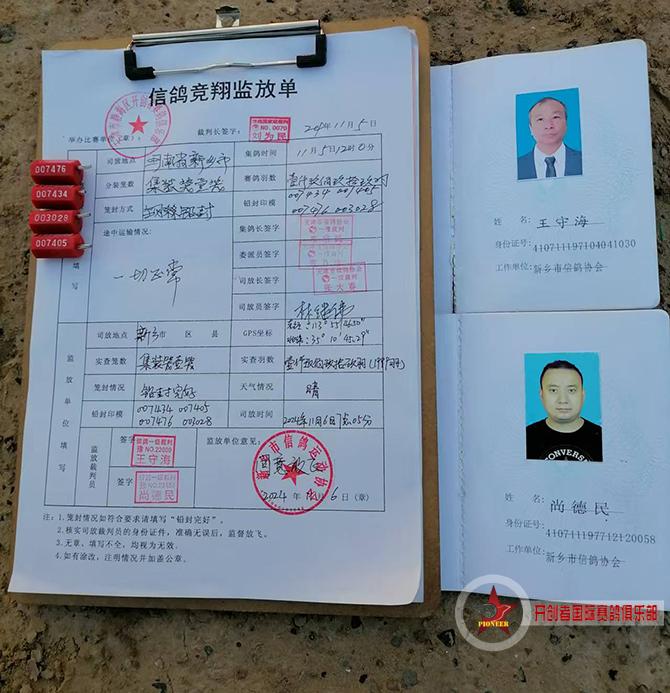 信鸽竞翔监放单
举办比赛单位（章）：
裁判长签字：
NO.0070
刘为民
2024年11月5日
司放地点 河南省新乡市 集鸽时间 11月5日12时0分
分装笼数 集装箱壹笼 赛鸽羽数
007434 007405
笼封方式 铅封印模 007476 003028
途中运输情况：
一切正常
集鸽长签字
委派员签字
司放长签字
司放员签字
填写
司放地点 新乡市 区 县 GPS坐标
实查笼数 集装箱壹笼 实查羽数
笼封情况 铅封完好 天气情况 晴
铅封印模 007434 007405
007476 003028
司放时间 2024年11月6日7点05分
监放单位填写
监放裁判员
签字
国家一级裁判
豫NO.22009
王守海
签字
尚德民
监放单位意见：
同意放飞
2024年11月6日（章）
新乡市信鸽运动协会
注：1.笼封情况如符合要求请填写“铅封完好”。
2.核实司放裁判员的身份证件，准确无误后，监督放飞。
3.无章、填写不全，均视为无效。
4.如有涂改，注明情况并加盖公章。
007476
007434
003028
007405
姓名：王守海
身份证号：410711197104041030
工作单位：新乡市信鸽协会
姓名：尚德民
身份证号：410711197712120058
工作单位：新乡市信鸽协会
PIONEER
开创者国际赛鸽俱乐部